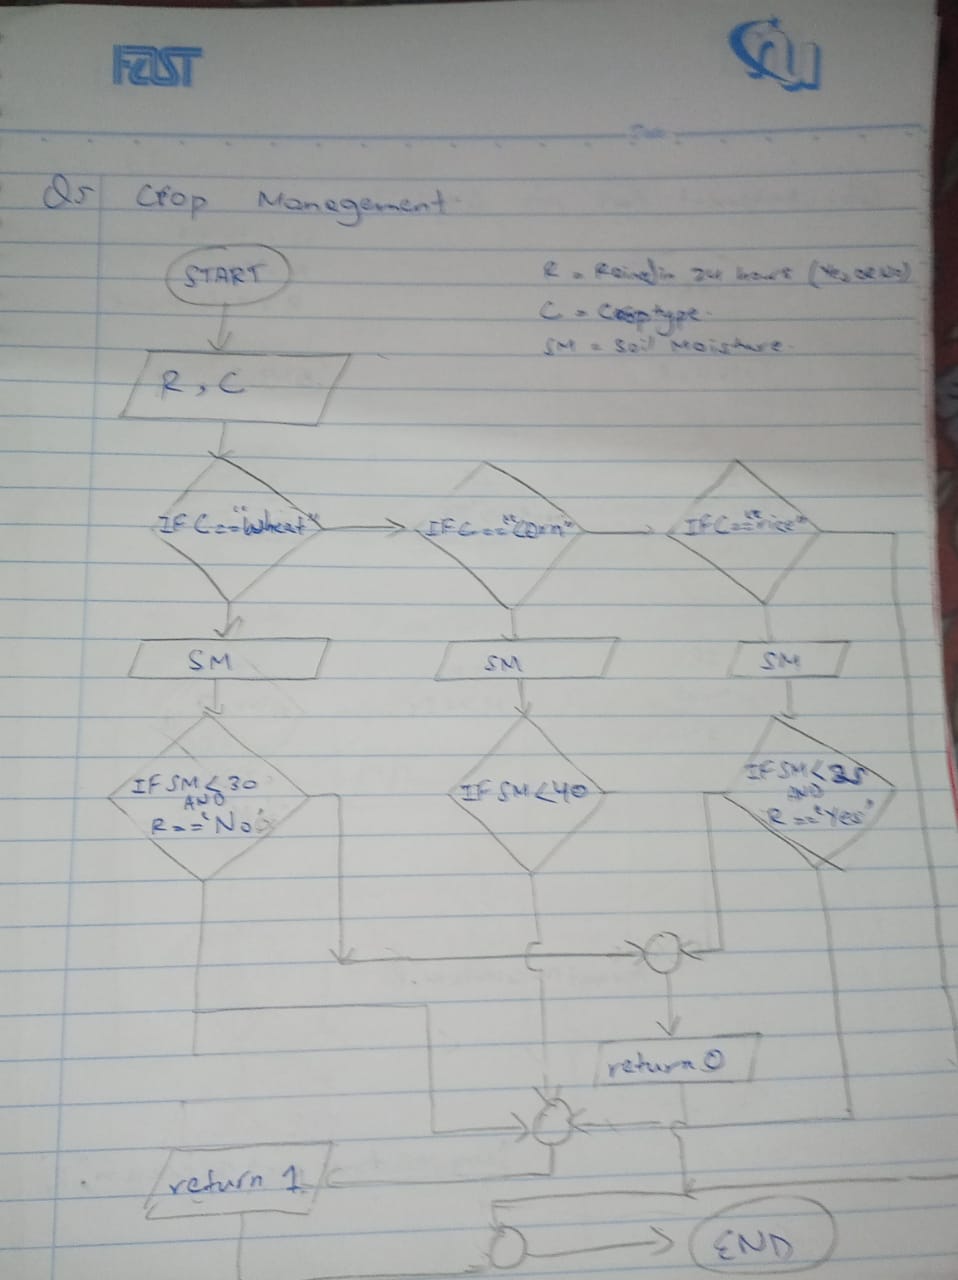 FAST
Q5 Crop Management
START
R = Rained in 24 hours (Yes or No)
C = Crop type.
SM = Soil Moisture.
R, C
IF C=="Wheat"
IF C=="Corn"
IF C=="rice"
SM
SM
SM
IF SM<30
AND
R=="No"
IF SM<40
IF SM<25
AND
R=="Yes"
return 0
return 1
END